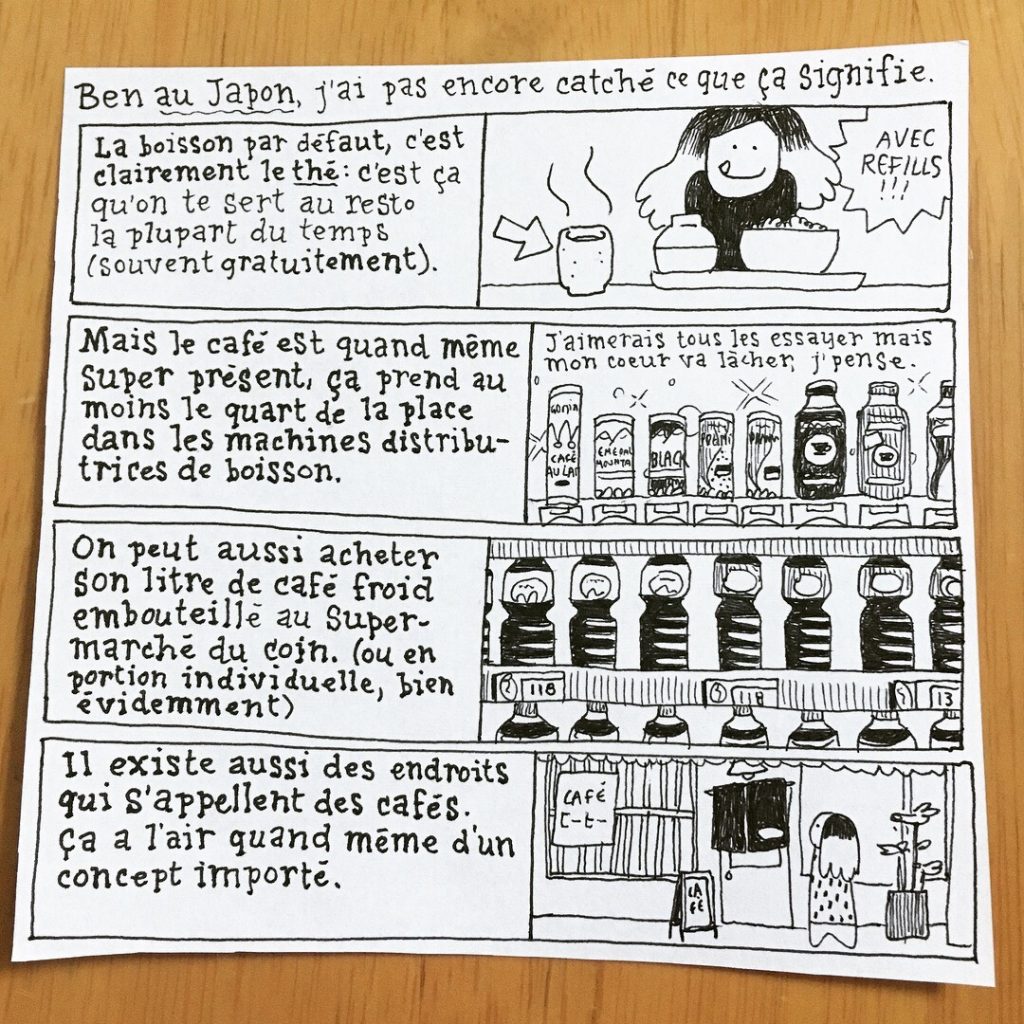 Ben au Japon, j'ai pas encore catché ce que ça signifie.
La boisson par défaut, c'est
clairement le thé : c'est ça
qu'on te sert au resto
la plupart du temps
(souvent gratuitement).
AVEC
REFILLS
!!!
Mais le café est quand même
super présent, ça prend au
moins le quart de la place
dans les machines distribu-
trices de boisson.
J'aimerais tous les essayer mais
mon coeur va lâcher, j'pense.
CAFÉ
AU LAIT
EMERAL
MOUNTA
BLACK
On peut aussi acheter
son litre de café froid
embouteillé au super-
marché du coin. (ou en
portion individuelle, bien
évidemment)
118
118
13
Il existe aussi des endroits
qui s'appellent des cafés.
Ça a l'air quand même d'un
concept importé.
CAFÉ
コーヒー
CA
FÉ